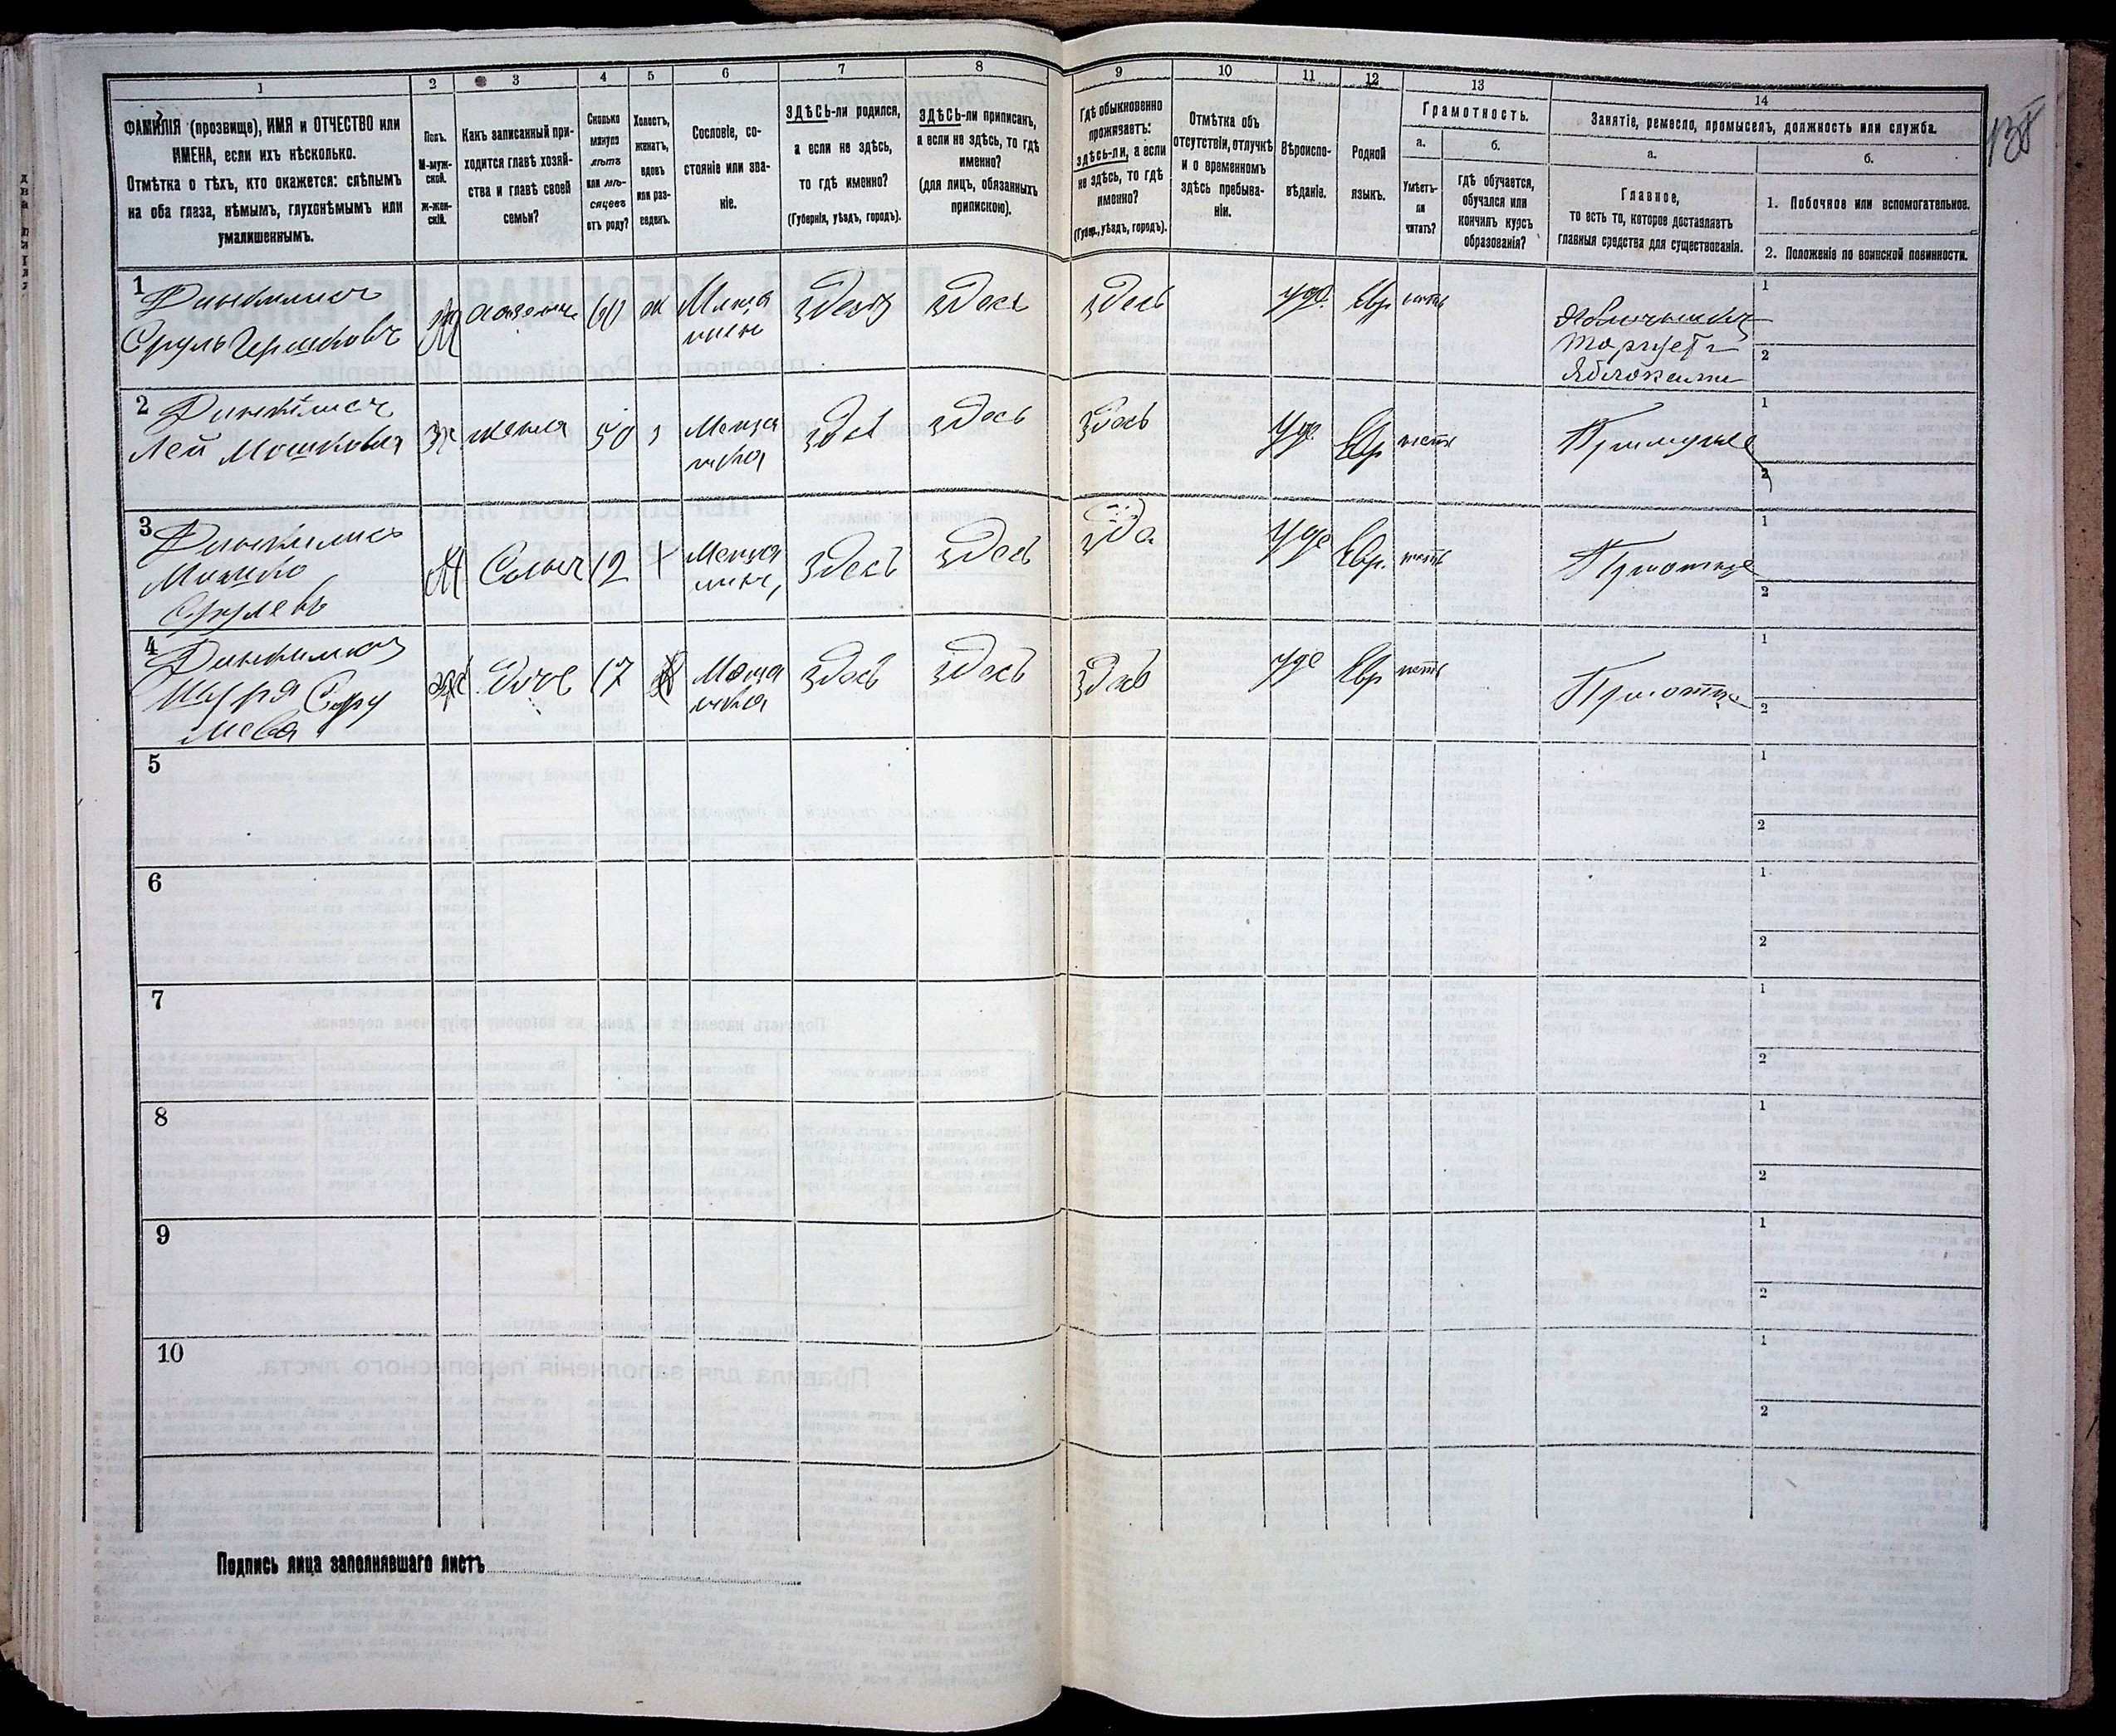 1
2
3
4
5
6
7
8
9
10
11
12
13
14
138
ФАМИЛІЯ (прозвище), ИМЯ и ОТЧЕСТВО или
ИМЕНА, если ихъ нѣсколько.
Отмѣтка о тѣхъ, кто окажется: слѣпымъ
на оба глаза, нѣмымъ, глухонѣмымъ или
умалишеннымъ.
Полъ.
М-муж-
ской.
Ж-жен-
скій.
Какъ записанный при-
ходится главѣ хозяй-
ства и главѣ своей
семьи?
Сколько
минуло
лѣтъ
или мѣ-
сяцевъ
отъ роду?
Холостъ,
женатъ,
вдовъ
или раз-
веденъ.
Сословіе, со-
стояніе или зва-
ніе.
ЗДѢСЬ-ли родился,
а если не здѣсь,
то гдѣ именно?
(Губернія, уѣздъ, городъ).
ЗДѢСЬ-ли приписанъ,
а если не здѣсь, то гдѣ
именно?
(для лицъ, обязанныхъ
припискою).
Гдѣ обыкновенно
проживаетъ:
здѣсь-ли, а если
не здѣсь, то гдѣ
именно?
(Губерн., уѣздъ, городъ).
Отмѣтка объ
отсутствіи, отлучкѣ
и о временномъ
здѣсь пребыва-
ніи.
Вѣроиспо-
вѣданіе.
Родной
языкъ.
Грамотность.
а.
Умѣетъ-
ли
читать?
б.
гдѣ обучается,
обучался или
кончилъ курсъ
образованія?
Занятіе, ремесло, промыселъ, должность или служба.
а.
Главное,
то есть то, которое доставляетъ
главныя средства для существованія.
б.
1. Побочное или вспомогательное.
2. Положеніе по воинской повинности.
1
Сруль Гершковъ
М
хозяинъ
60
ж
Мѣща
нинъ
здесь
здесь
здесь
іуд.
Евр
нѣтъ
Торгуетъ
яблоками
1
2
2
Лея Мошкова
Ж
жена
50
з
Мѣща
нка
здесь
здесь
здесь
іуд
Евр
нѣтъ
При мужѣ
1
2
3
Мошко
Срулевъ
М
Сынъ
12
х
Мѣща
нинъ
здесь
здесь
іуд
Евр.
нѣтъ
При отце
1
2
4
Шура Сру
лева
ж
Дочь
17
Мѣща
нка
здесь
здесь
здесь
іуд
Евр
нѣтъ
При отце
1
2
5
1
2
6
1
2
7
1
2
8
1
2
9
1
2
10
1
2
Подпись лица заполнявшаго листъ